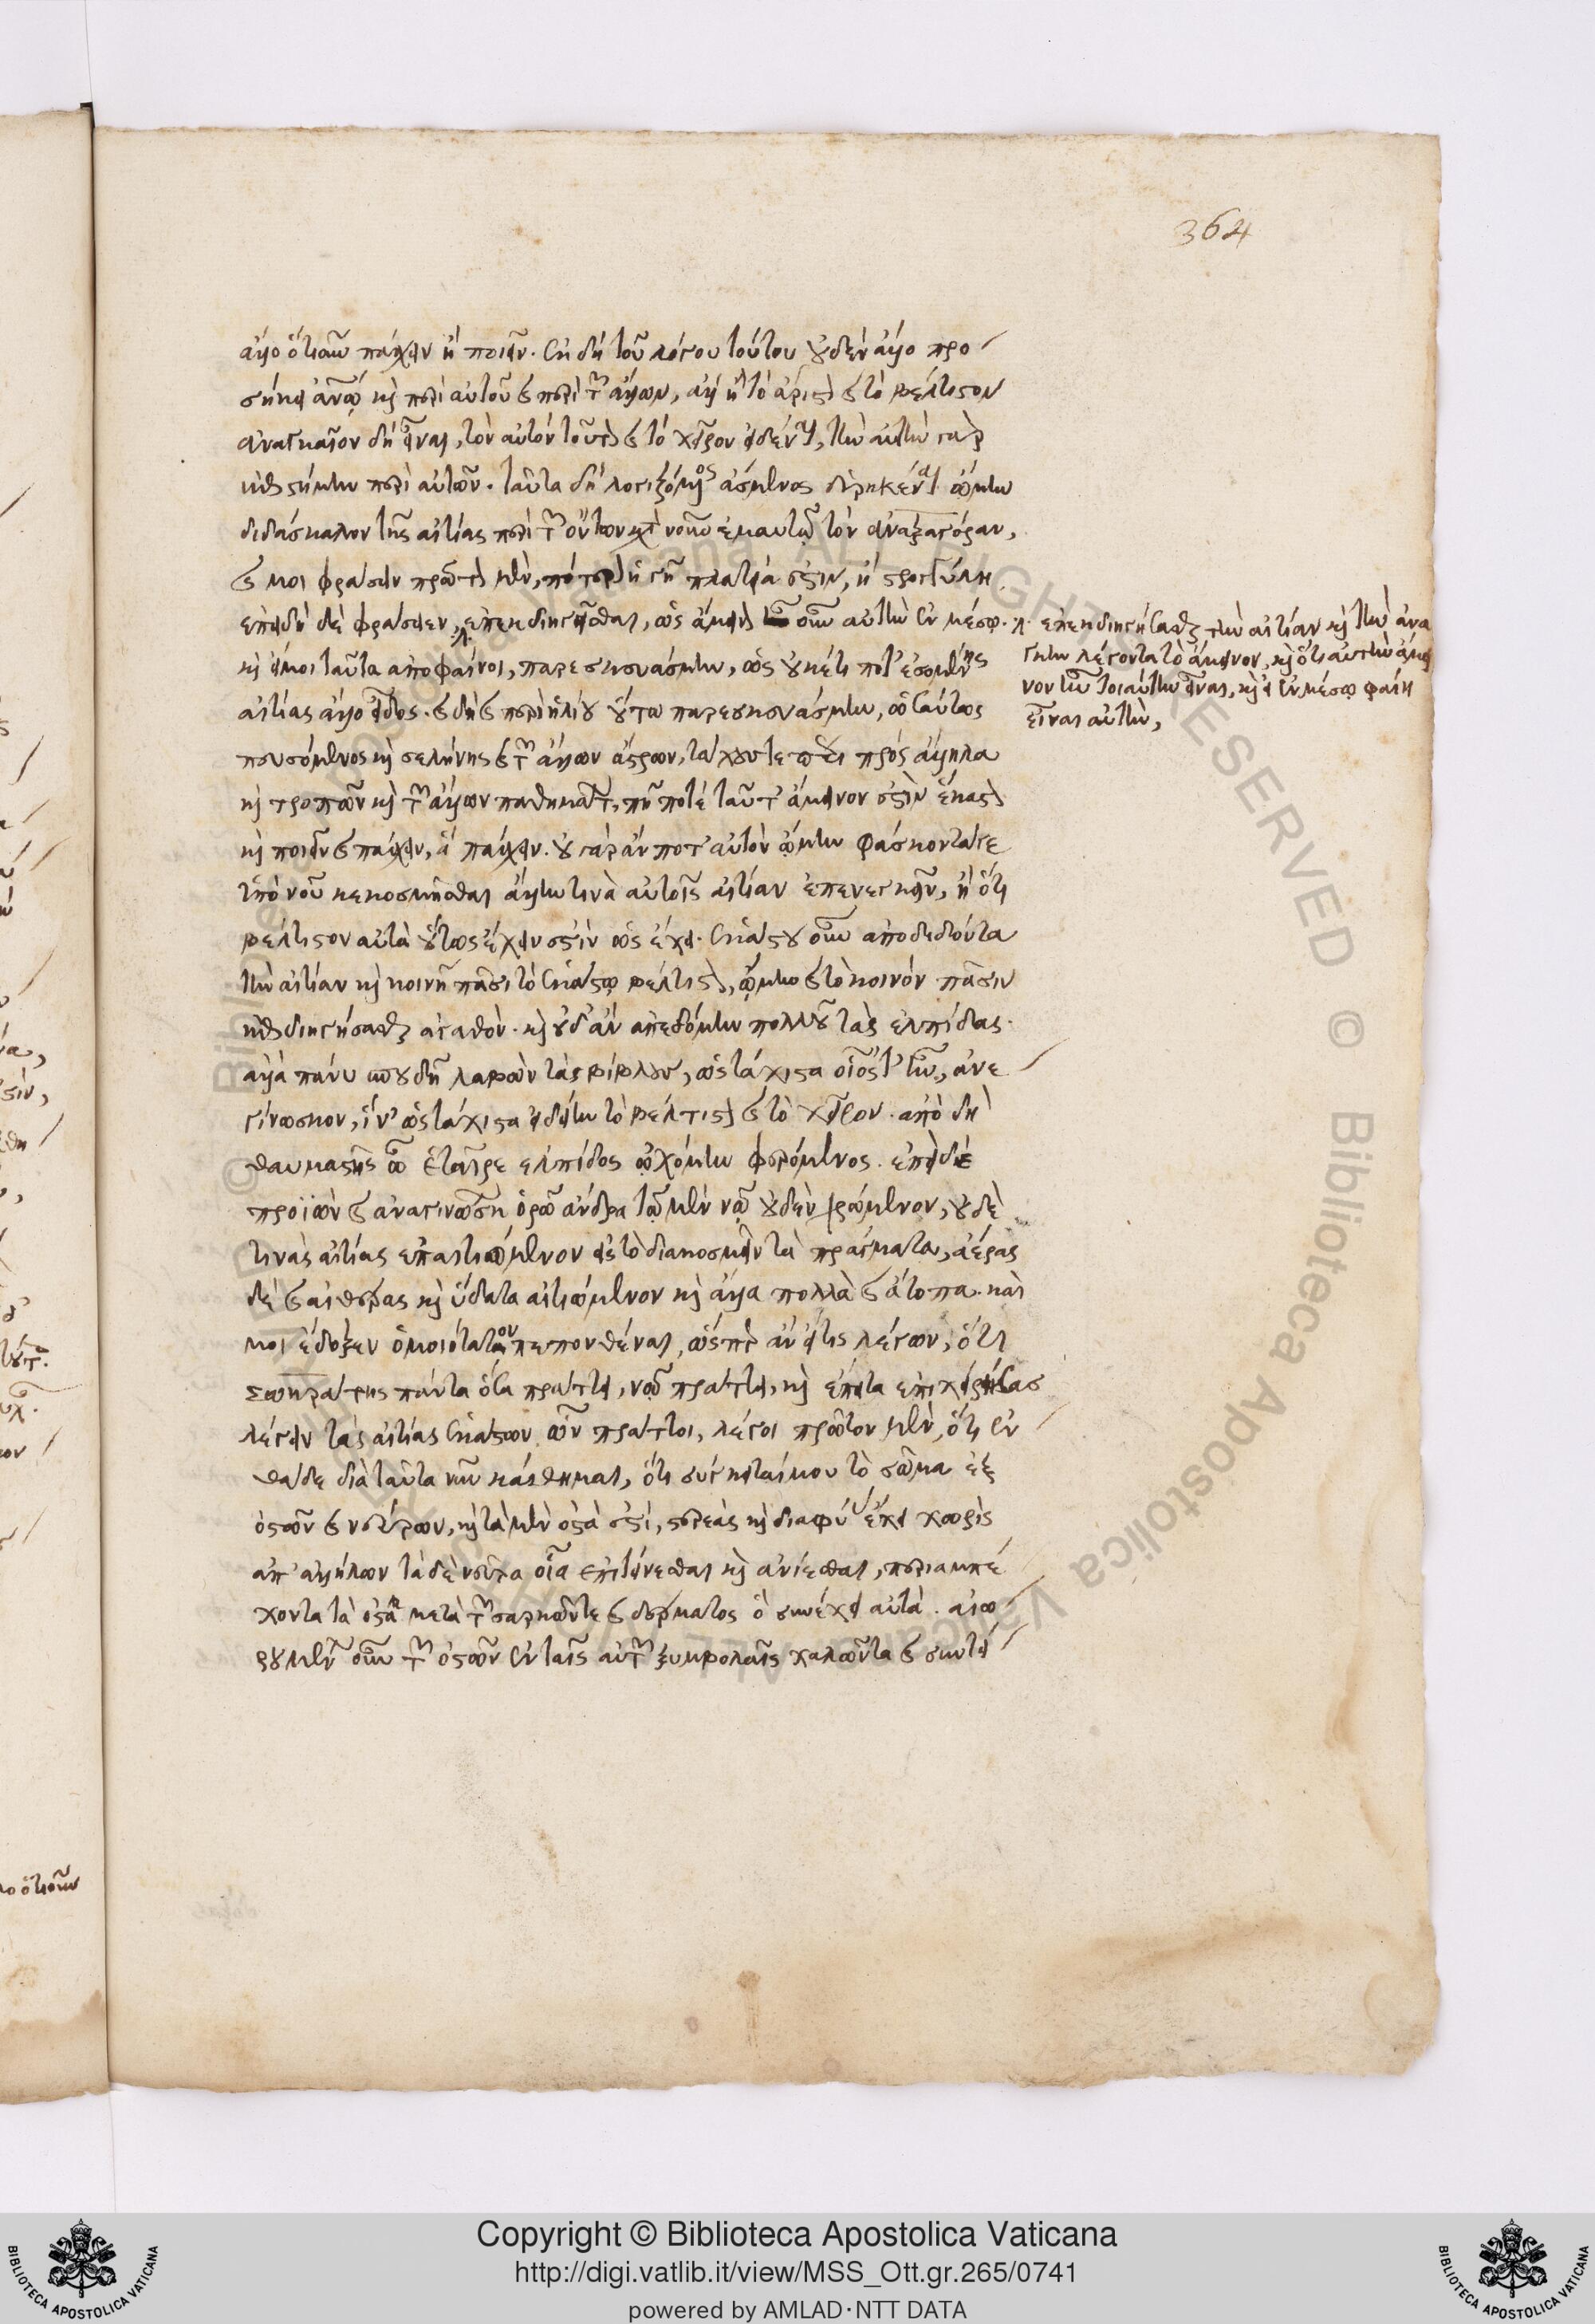 364
ἄλλο ὁτιοῦν πάσχειν ἢ ποιεῖν. ἐκ δὴ τοῦ λόγου τούτου οὐδὲν ἄλλο προ
σήκει ἀνθρώπῳ καὶ περὶ αὐτοῦ καὶ περὶ τῶν ἄλλων, ἀλλ' ἢ τὸ ἄριστον καὶ τὸ βέλτιστον
ἀναγκαῖον δὴ εἶναι, τὸν αὐτὸν τοῦτον καὶ τὸ χεῖρον εἰδέναι, τὴν αὐτὴν γὰρ
ἐπιστήμην περὶ αὐτῶν. ταῦτα δὴ λογιζόμενος ἄσμενος εὑρηκέναι ᾤμην
διδάσκαλον τῆς αἰτίας περὶ τῶν ὄντων κατὰ νοῦν ἐμαυτῷ τὸν ἀναξαγόραν,
καί μοι φράσειν πρῶτον μὲν, πότερον ἡ γῆ πλατεῖά ἐστιν, ἢ στρογγύλη.
ἐπειδὴ δὲ φράσειεν, ἐπεκδιηγεῖσθαι, ὡς ἄμεινον ἦν αὐτὴν ἐν μέσῳ.
καὶ εἴ μοι ταῦτα ἀποφαίνοι, παρεσκευάσμην, ὡς οὐκέτι ποτ' ἐσομένης
αἰτίας ἄλλο εἶδος. καὶ δὴ καὶ περὶ ἡλίου οὕτω παρεσκευάσμην, ὡσαύτως
πευσόμενος καὶ σελήνης καὶ τῶν ἄλλων ἄστρων, τάχους τε πέρι πρὸς ἄλληλα
καὶ τροπῶν καὶ τῶν ἄλλων παθημάτων, πῆ ποτὲ ταῦτ' ἄμεινόν ἐστιν ἕκαστον
καὶ ποιεῖν καὶ πάσχειν, ἃ πάσχειν. οὐ γὰρ ἄν ποτ' αὐτὸν ᾤμην φάσκοντά γε
ὑπὸ νοῦ κεκοσμῆσθαι ἄλλην τινὰ αὐτοῖς αἰτίαν ἐπενεγκεῖν, ἢ ὅτι
βέλτιστον αὐτὰ οὕτως ἔχειν ἐστὶν ὡς ἔχει. ἑκάστου οὖν ἀποδιδόντα
τὴν αἰτίαν καὶ κοινῇ πᾶσι τὸ ἑκάστῳ βέλτιστον, ᾤμην καὶ τὸ κοινὸν πᾶσιν
ἐπεκδιηγήσασθαι ἀγαθόν. καὶ οὐδ' ἂν ἀπεδόμην πολλοῦ τὰς ἐλπίδας.
ἀλλὰ πάνυ σπουδῇ λαβὼν τὰς βίβλους, ὡς τάχιστα οἷός τ' ἦν, ἀνε
γίνωσκον, ἵν' ὡς τάχιστα εἰδείην τὸ βέλτιστον καὶ τὸ χεῖρον. ἀπὸ δὴ
θαυμαστῆς ὦ ἑταῖρε ἐλπίδος ᾠχόμην φερόμενος. ἐπειδὴ
προϊὼν καὶ ἀναγινώσκων ὁρῶ ἄνδρα τῷ μὲν νῷ οὐδὲν χρώμενον, οὐδέ
τινας αἰτίας ἐπαιτιώμενον εἰς τὸ διακοσμεῖν τὰ πράγματα, ἀέρας
δὲ καὶ αἰθέρας καὶ ὕδατα αἰτιώμενον καὶ ἄλλα πολλὰ καὶ ἄτοπα. καί
μοι ἔδοξεν ὁμοιότατον πεπονθέναι, ὥσπερ ἂν εἴ τις λέγων, ὅτι
σωκράτης πάντα ὅσα πράττει, νῷ πράττει, καὶ ἔπειτα ἐπιχειρήσας
λέγειν τὰς αἰτίας ἑκάστων ὧν πράττοι, λέγοι πρῶτον μὲν, ὅτι ἐν
θάδε διὰ ταῦτα νῦν κάθημαι, ὅτι σύγκειταί μου τὸ σῶμα ἐξ
ὀστῶν καὶ νεύρων, καὶ τὰ μὲν ὀστᾶ ἐστὶ, στερεὰ καὶ διαφυὰς ἔχει χωρὶς
ἀπ' ἀλλήλων τὰ δὲ νεῦρα οἷα ἐπιτείνεσθαι καὶ ἀνίεσθαι, περιαμπέ
χοντα τὰ ὀστᾶ μετὰ τῶν σαρκῶν τε καὶ δέρματος ὃ συνέχει αὐτά. αἰω
ρουμένων οὖν τῶν ὀστῶν ἐν ταῖς αὐτῶν ξυμβολαῖς χαλῶντα καὶ συντεί
ἐπεκδιηγήσασθαι τὴν αἰτίαν καὶ τὴν ἀνά
γκην λέγοντα τὸ ἄμεινον, καὶ ὅτι αὐτὴν ἄμει
νον ἦν τοιαύτην εἶναι, καὶ εἰ ἐν μέσῳ φαίη
εἶναι αὐτὴν,
Copyright © Biblioteca Apostolica Vaticana
http://digi.vatlib.it/view/MSS_Ott.gr.265/0741
powered by AMLAD·NTT DATA